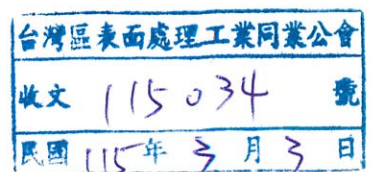 台灣區表面處理工業同業公會
收文 115034 號
民國 115 年 3 月 3 日